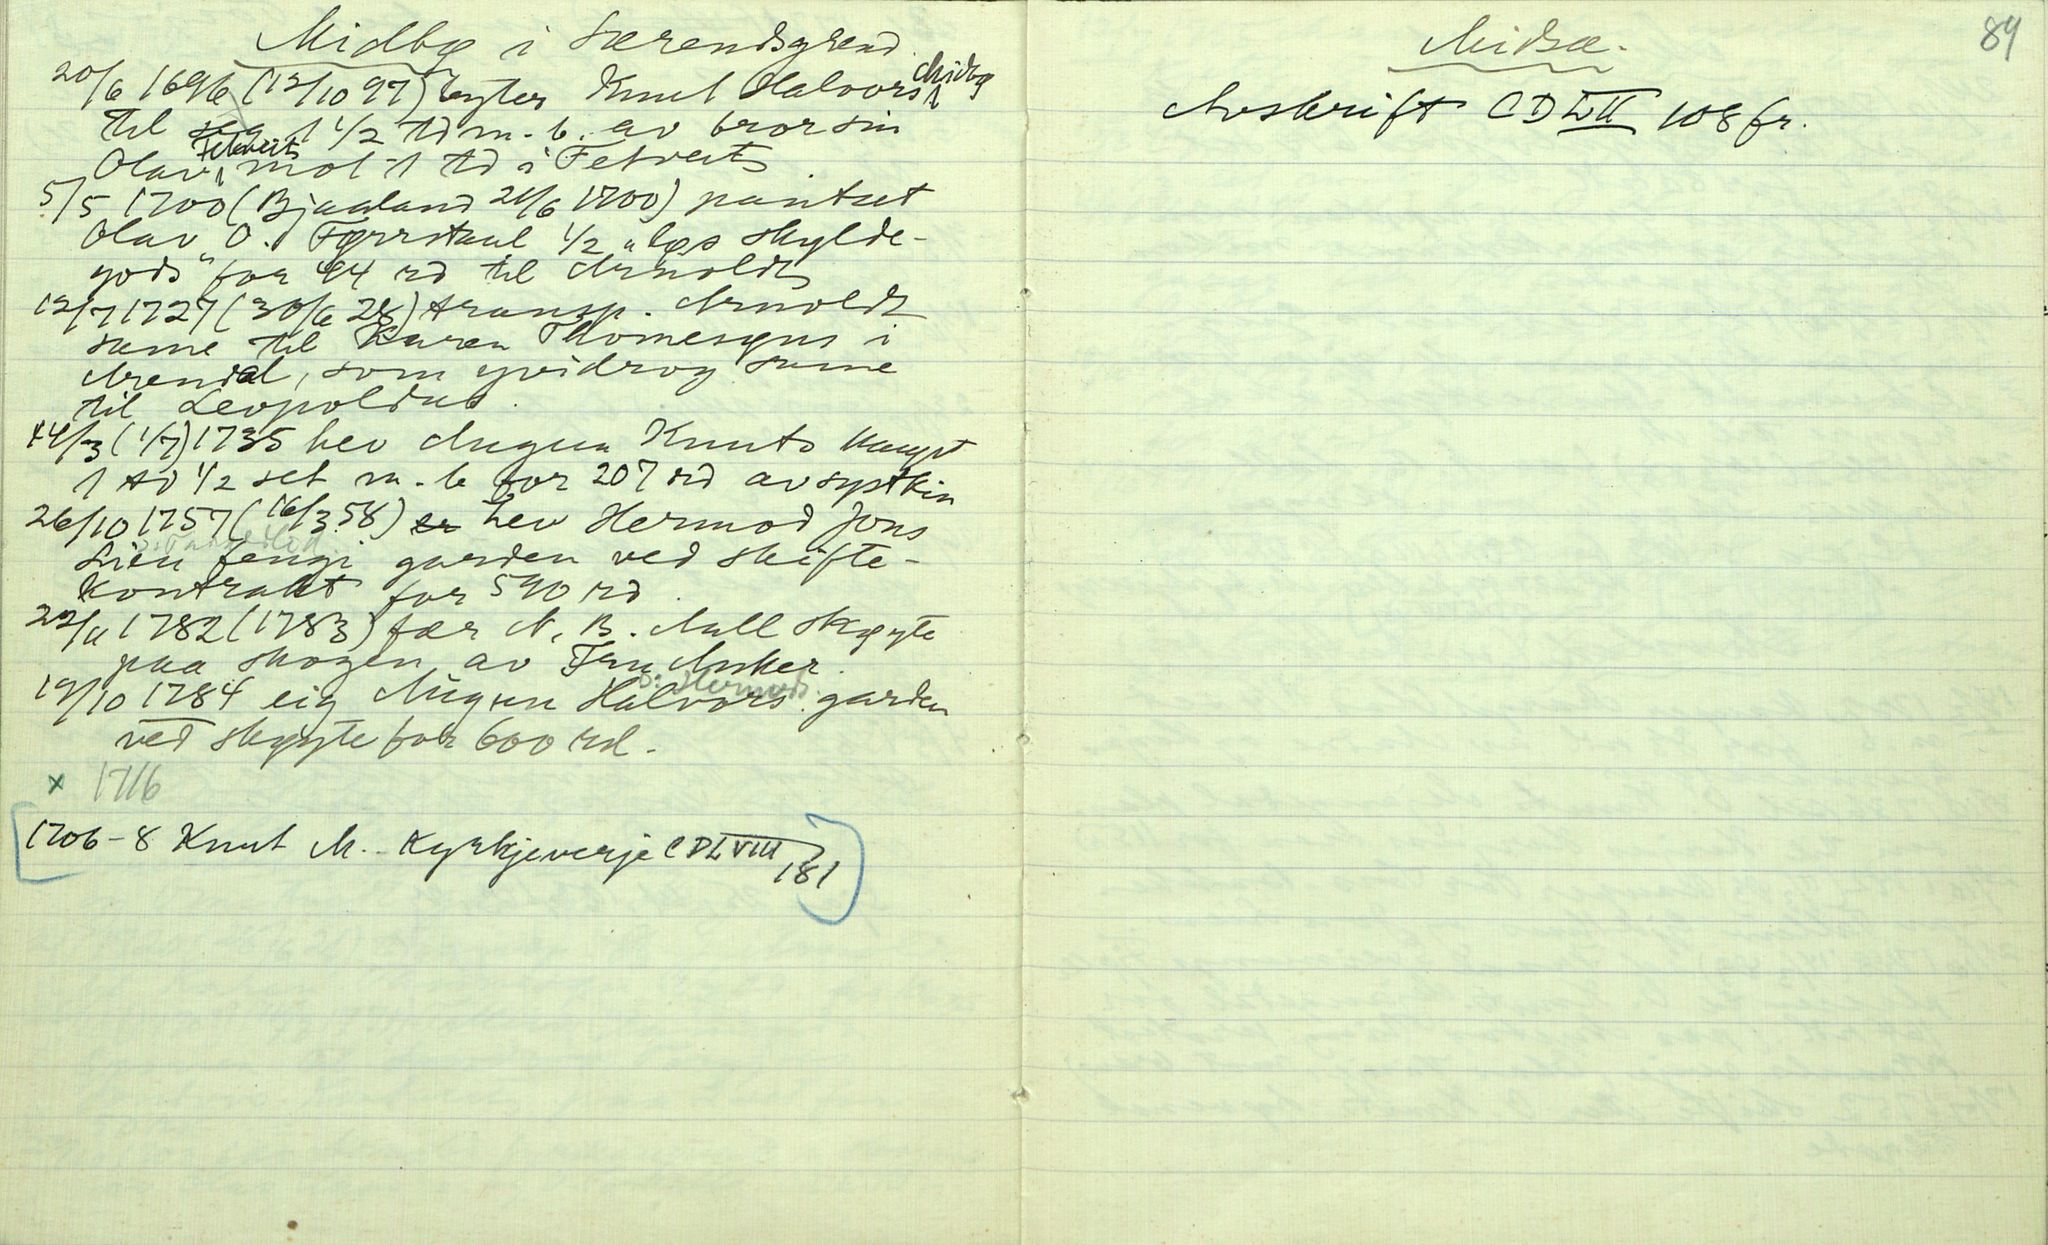 Midbø i Særensgrend
20/6 1696 (12/10 97) byter Knut Halvors Midbø
til seg 1 1/2 td m. b. av bror sin
Olav Fetveit, mot 1 td i Fetveit,
5/5 1700 (Bjaaland 21/6 1700) pantset
Olav O. Førrstaul 1/2 "løs skylde-
gods" for 44 rd til Arnoldt
12/7 1727 (30/6 28) transp. Arnoldt
same til Karen Thomesgus i
Arendal, som yvidrog same
til Leopoldus.
14/3 (1/7) 1735 hev Augun Knuts kaupt
1 td 1/2 set m. b for 207 rd av systkin
26/10 1757 (16/3 58) hev Hermod Jons
Lien fengi garden ved skifte-
kontrakt for 590 rd.
22/11 1782 (1783) fær N. B. Aall skøyte
paa skogen av Fru Anker.
19/10 1784 eig Augun Halvors. garden
s. Hermods.
ved skøyte for 600 rd.
x 1716
1706-8 Knut M. Kyrkjeverje CDLVIII
181
84
Midbø.
Avskrift CDLII 108 fr.